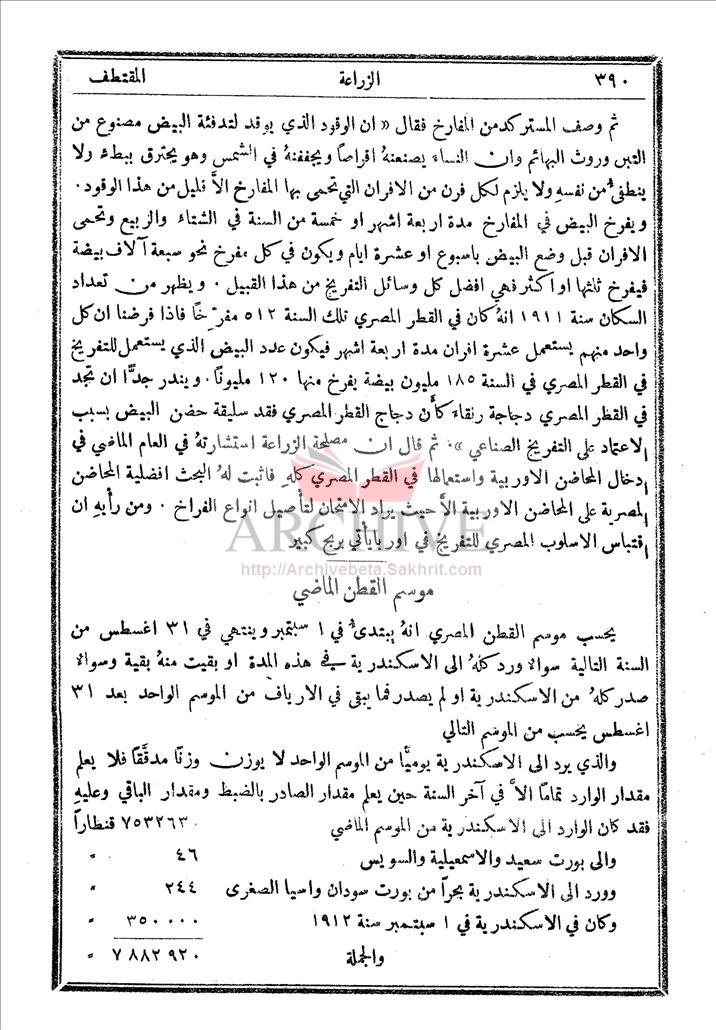 ٣٩٠ الزراعة المقتطف
ثم وصف المستركد من المفارخ فقال « ان الوقود الذي يوقد لتدفئة البيض مصنوع من
التبن وروث البهائم وان النساء يصنعنهُ اقراصاً ويجففنهُ في الشمس وهو يحترق ببطء ولا
ينطفئ من نفسهِ ولا يلزم لكل فرن من الافران التي تحمى بها المفارخ الاَّ قليل من هذا الوقود ·
ويفرخ البيض في المفارخ مدة اربعة اشهر او خمسة من السنة في الشتاء والربيع وتحمى
الافران قبل وضع البيض باسبوع او عشرة ايام ويكون في كل مفرخ نحو سبعة آلاف بيضة
فيفرخ ثلثها او اكثر فهي افضل كل وسائل التفريخ من هذا القبيل · ويظهر من تعداد
السكان سنة ١٩١١ انهُ كان في القطر المصري تلك السنة ٥١٢ مفرّخاً فاذا فرضنا ان كل
واحد منهم يستعمل عشرة افران مدة اربعة اشهر فيكون عدد البيض الذي يستعمل للتفريخ
في القطر المصري في السنة ١٨٥ مليون بيضة يفرخ منها ١٢٠ مليوناً · ويندر جدًّا ان تجد
في القطر المصري دجاجة رنقاء كأن دجاج القطر المصري فقد سليقة حضن البيض بسبب
الاعتماد على التفريخ الصناعي » · ثم قال ان مصلحة الزراعة استشارتهُ في العام الماضي في
ادخال المحاضن الاوربية واستعمالها في القطر المصري كلهِ فاثبت لهُ البحث افضلية المحاضن
المصرية على المحاضن الاوربية الاَّ حيث يراد الامتحان لتأصيل انواع الفراخ · ومن رأيهِ ان
اقتباس الاسلوب المصري للتفريخ في اوربا يأتي بربح كبير
ARCHIVE
http://Archivebeta.Sakhrit.com
موسم القطن الماضي
يحسب موسم القطن المصري انهُ يبتدئ في ١ سبتمبر وينتهي في ٣١ اغسطس من
السنة التالية سواء ورد كلهُ الى الاسكندرية في هذه المدة او بقيت منهُ بقية وسواء
صدر كلهُ من الاسكندرية او لم يصدر فما يبقى في الارياف من الموسم الواحد بعد ٣١
اغسطس يحسب من الموسم التالي
والذي يرد الى الاسكندرية يوميًّا من الموسم الواحد لا يوزن وزناً مدققاً فلا يعلم
مقدار الوارد تماماً الاَّ في آخر السنة حين يعلم مقدار الصادر بالضبط ومقدار الباقي وعليهِ
فقد كان الوارد الى الاسكندرية من الموسم الماضي ٧٥٣٢٦٣٠ قنطاراً
والى بورت سعيد والاسمعيلية والسويس ٤٦ "
وورد الى الاسكندرية بحراً من بورت سودان واسيا الصغرى ٢٤٤ "
وكان في الاسكندرية في ١ سبتمبر سنة ١٩١٢ ٣٥٠٠٠٠ "
والجملة ٧٨٨٢٩٢٠ "